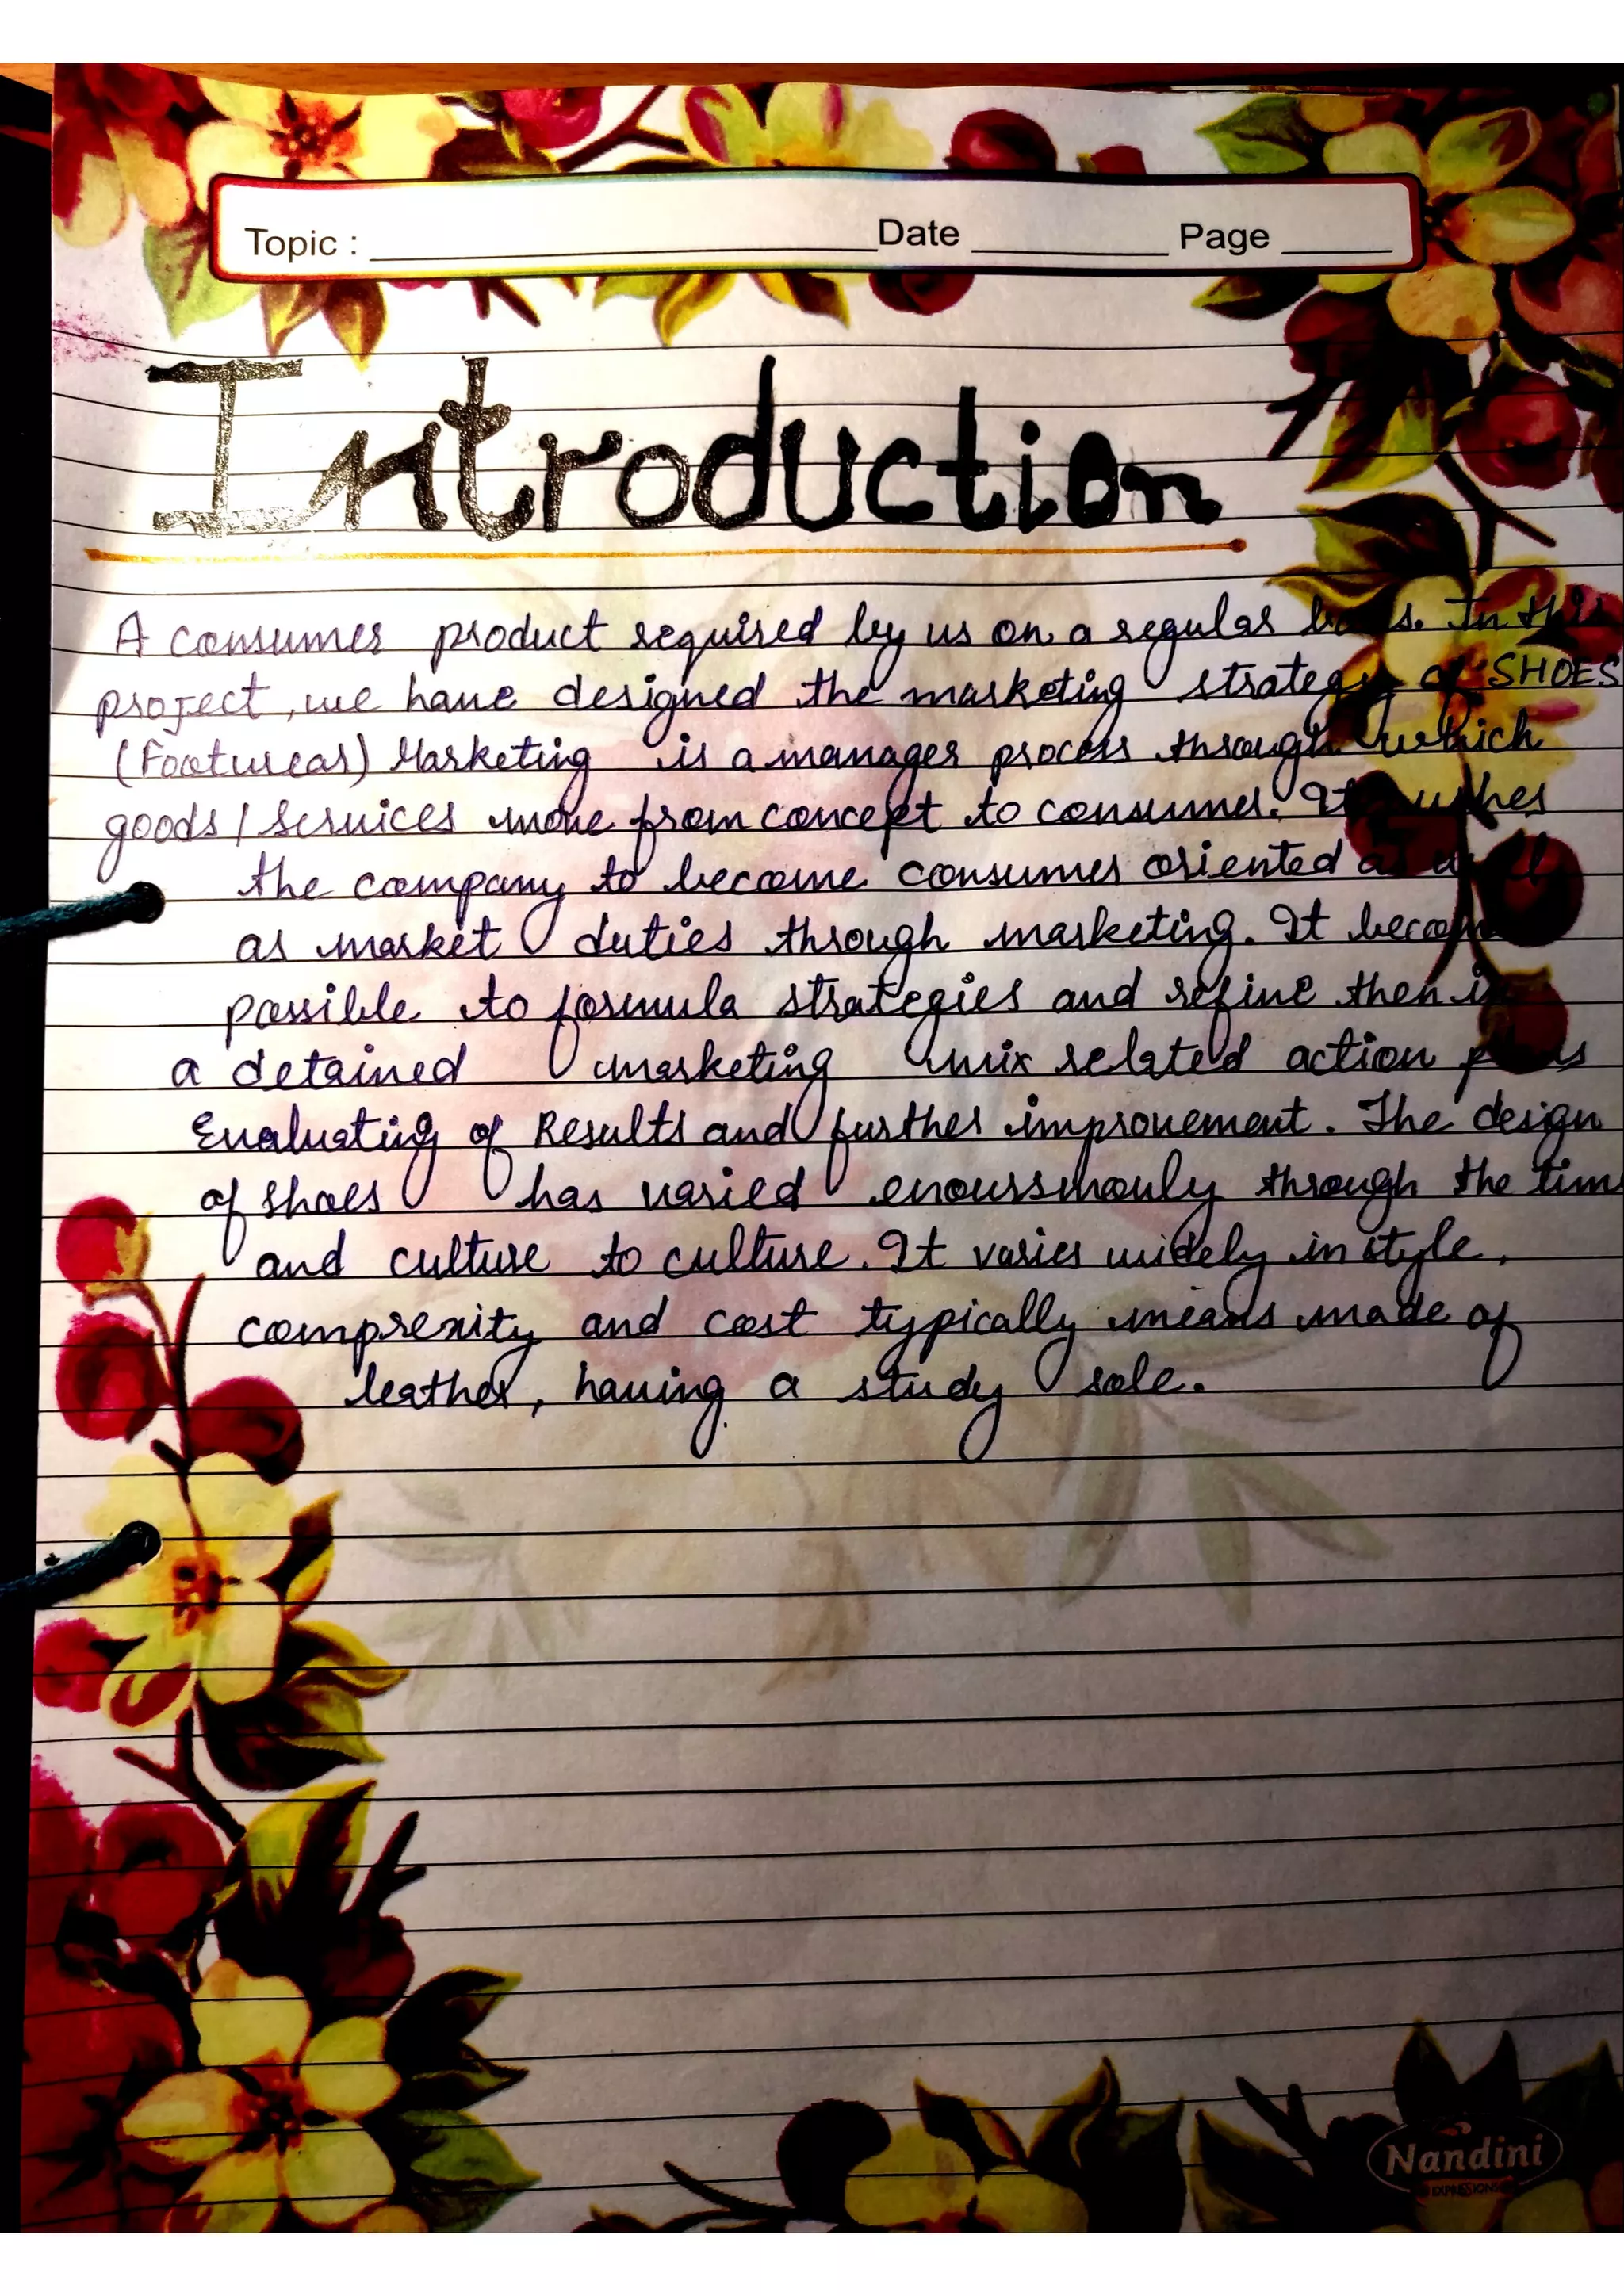 Topic : Date Page
Introduction
A consumer product required by us on a regular In this
project, we have designed the marketing strategy of SHOES
(Footwear) Marketing is a manager process through which
goods / services move from concept to consumer. It
the company to become consumer oriented as well
as market duties through marketing. It
possible to formula strategies and refine then in
a detained marketing mix related action
Evaluating of Results and further improvement. The design
of shoes has varied enoursmouly through the
and culture to culture. It varies widely in style,
comprexity and cost typically means made of
leather, having a study sole.
Nandini
EXPRESSIONS